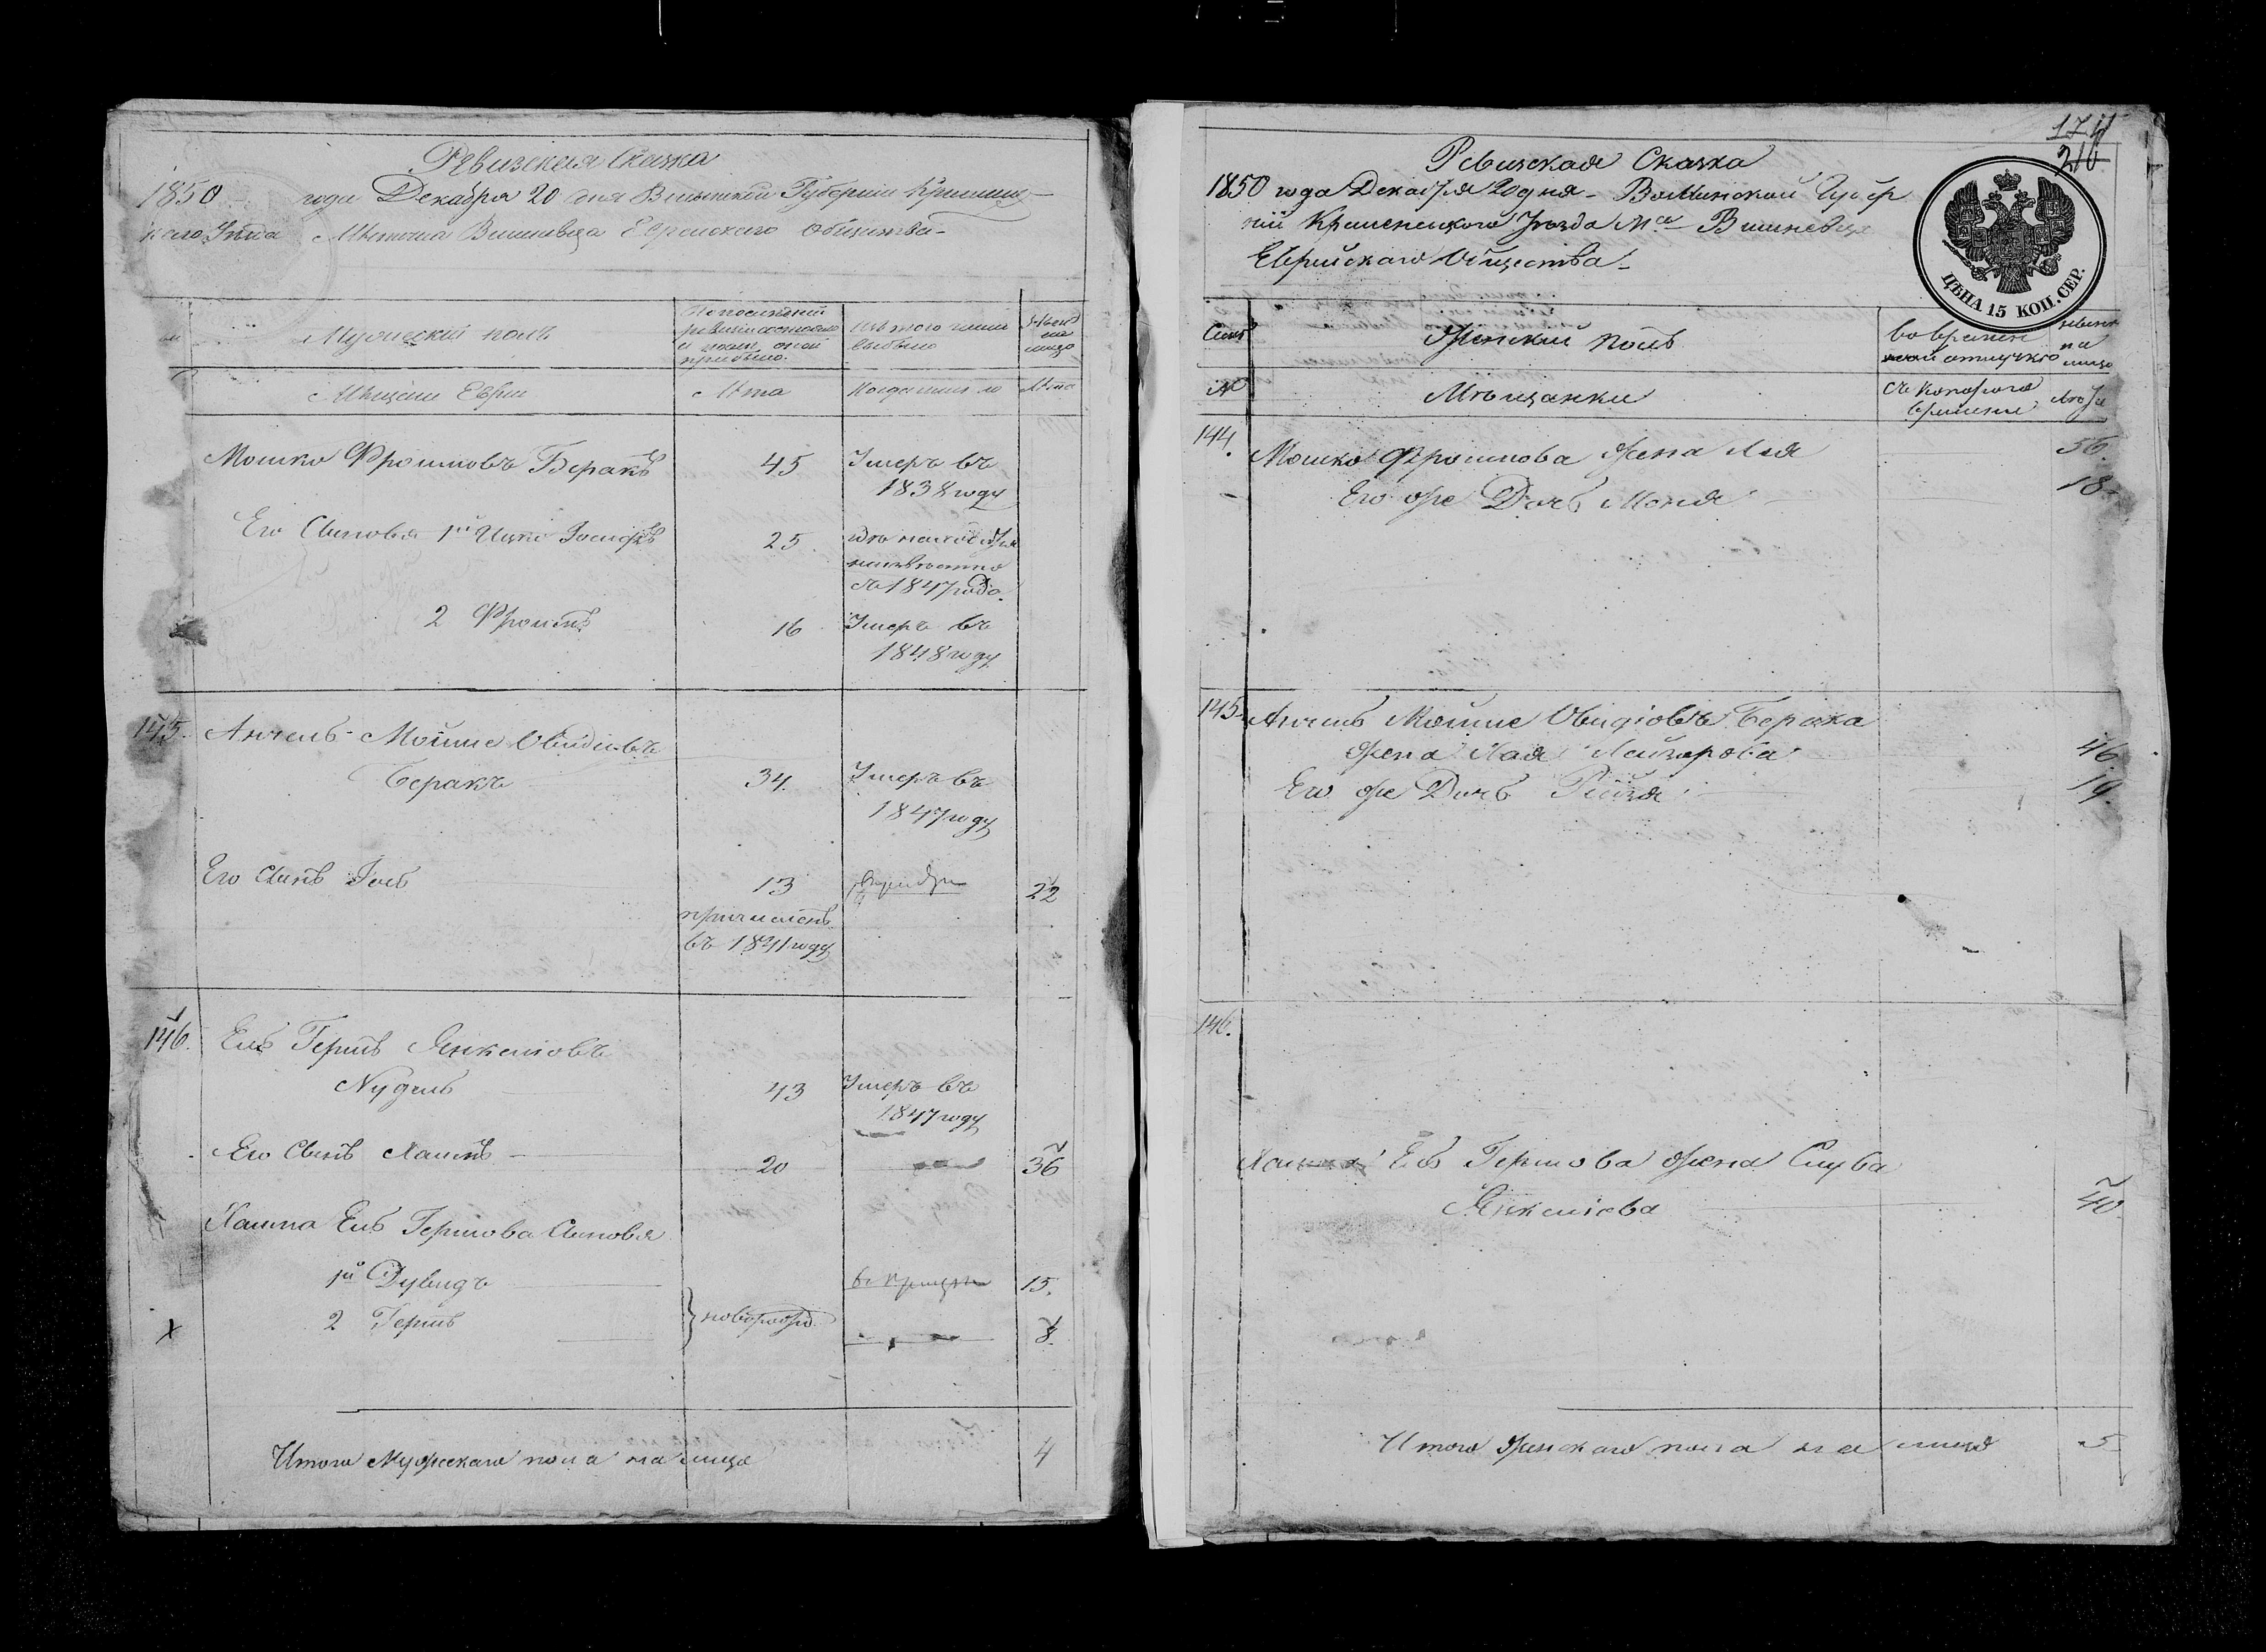 Ревизская Сказка
1850 года Декабря 20 дня Волынской Губернии Кременец-
каго Уезда Местечка Вишневца Еврейскаго Общества
Мужеский полъ
По последней
ревизии состояло
и после оной
прибыло.
Изъ того числа
выбыло
Ныне
на
лицо
Мещане Евреи
Лета
Когда именно
Лета
Мошко Фроимовъ Беракъ
45
Умеръ въ
1838 году
Его Сыновья 1й Ицко Иосифъ
25
где находится
неизвестно
съ 1847 года.
2 Фроимъ
16
Умеръ въ
1848 году
145.
Анчель Мойше Овидіовъ
Беракъ
34.
Умеръ въ
1847 году
Его Сынъ
13
22
причисленъ
въ 1841 году
146.
Ель Гершъ Янкелiовъ
Нудель
43
Умеръ въ
1847 году
Его Сынъ Хаимъ
20
36
Хаима Ель Гершова Сыновья
1й Дувидъ
15.
2 Гершъ
новорожд.
8.
Итого Мужескаго пола на лицо
4
174
210
Ревизская Сказка
1850 года Декабря 20 дня Волынской Губер
ніи Кременецкого Уезда Мка Вишневца
Еврейскаго Общества
ЦѢНА 15 КОП. СЕР.
Семьи
Женский полъ
во временной отлучке
ныне
на
лицо
№
Мещанки
Съ котораго
времени
Лета
144.
Мошко Фроимова жена Лея
56.
Его же Дочь Моня
18.
145.
Анчель Мойше Овидіовъ Берака
жена Хая Лейзорова
46
Его же Дочь Рейзя
19.
146.
Хаима Ель Гершова жена Слува
Янкеліова
40
Итого женскаго пола на лицо
5